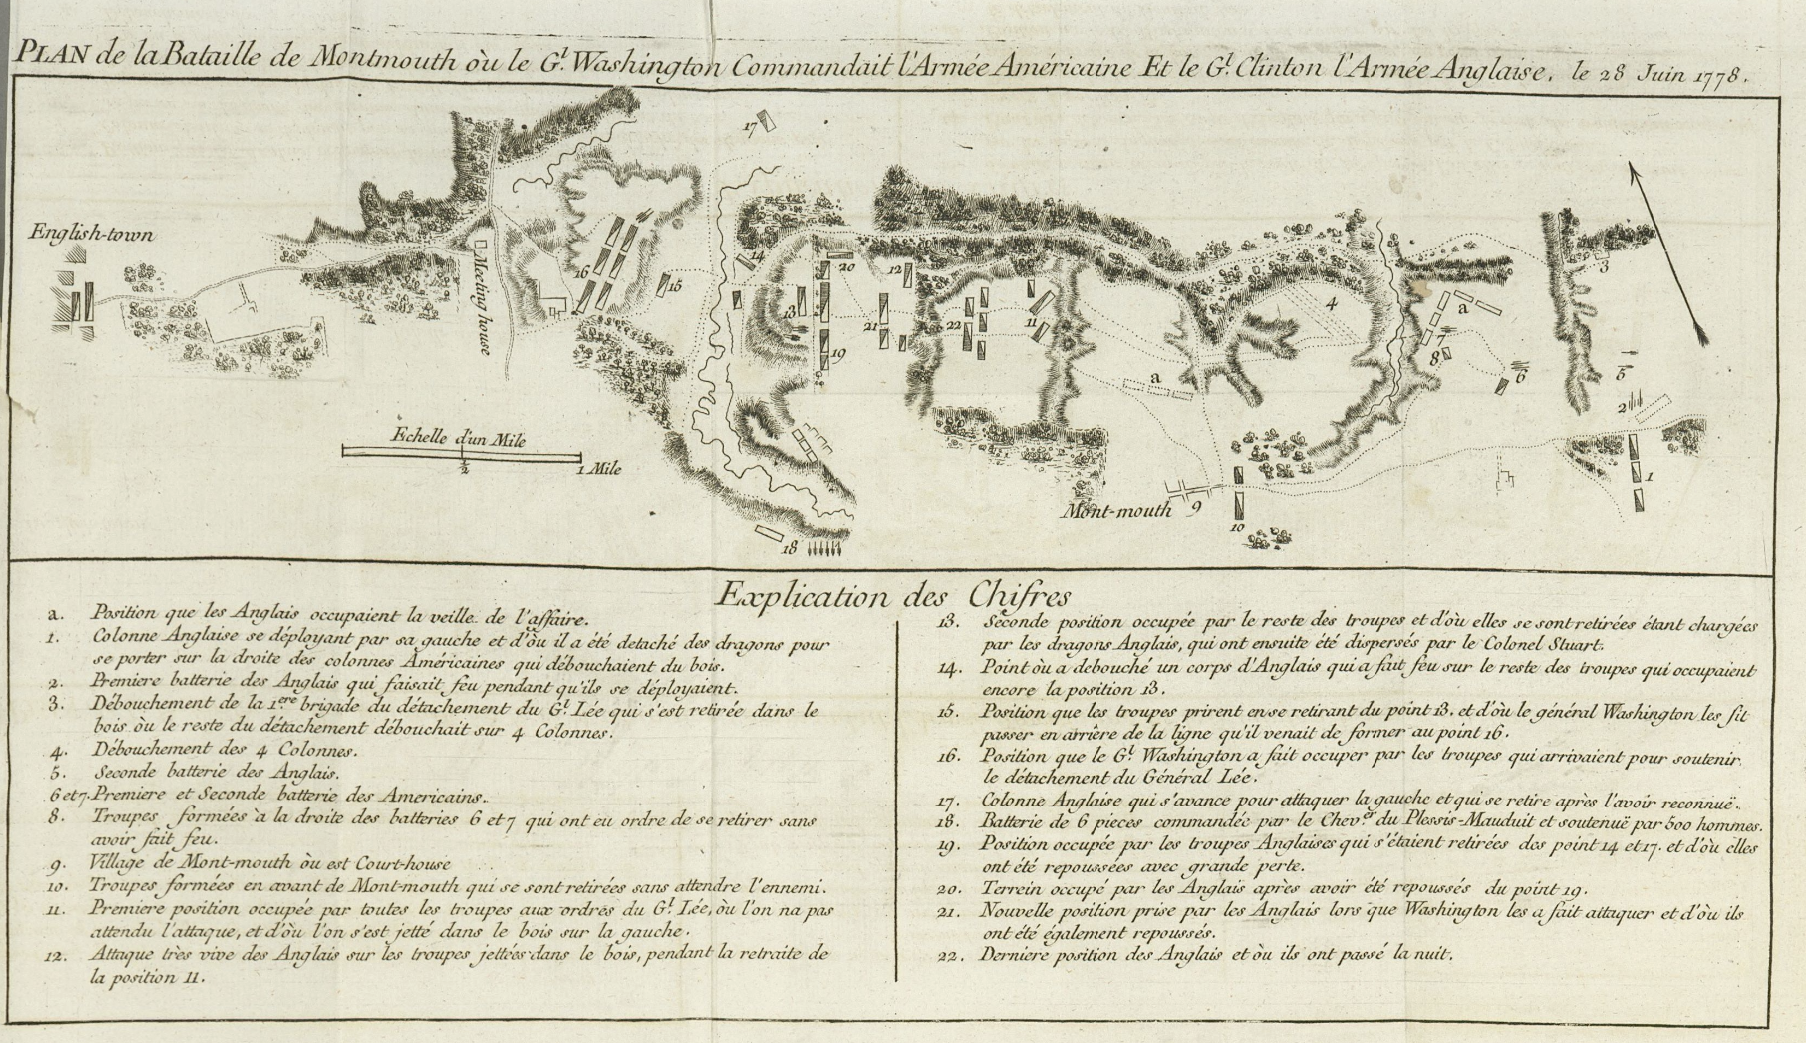 PLAN de la Bataille de Montmouth où le G.l Washington Commandait l'Armée Américaine Et le G.l Clinton l'Armée Anglaise, le 28 Juin 1778.
17
English-town
Meeting house
16
15
14
20
12
13
21
19
22
11
4
3
a
7
8
6
5
2
a
1
Echelle d'un Mile
½
1 Mile
Mont-mouth 9
10
18
Explication des Chifres
a. Position que les Anglais occupaient la veille de l'affaire.
1. Colonne Anglaise se déployant par sa gauche et d'où il a été detaché des dragons pour
se porter sur la droite des colonnes Américaines qui débouchaient du bois.
2. Premiere batterie des Anglais qui faisait feu pendant qu'ils se déployaient.
3. Débouchement de la 1.ere brigade du détachement du G.l Lée qui s'est retirée dans le
bois où le reste du détachement débouchait sur 4 Colonnes.
4. Débouchement des 4 Colonnes.
5. Seconde batterie des Anglais.
6 et 7. Premiere et Seconde batterie des Americains.
8. Troupes formées à la droite des batteries 6 et 7 qui ont eu ordre de se retirer sans
avoir fait feu.
9. Village de Mont-mouth où est Court-house
10. Troupes formées en avant de Mont-mouth qui se sont retirées sans attendre l'ennemi.
11. Premiere position occupée par toutes les troupes aux ordres du G.l Lée, où l'on na pas
attendu l'attaque, et d'où l'on s'est jetté dans le bois sur la gauche.
12. Attaque très vive des Anglais sur les troupes jettées dans le bois, pendant la retraite de
la position 11.
13. Seconde position occupée par le reste des troupes et d'où elles se sont retirées étant chargées
par les dragons Anglais, qui ont ensuite été dispersés par le Colonel Stuart.
14. Point où a debouché un corps d'Anglais qui a fait feu sur le reste des troupes qui occupaient
encore la position 13.
15. Position que les troupes prirent en se retirant du point 13. et d'où le général Washington les fit
passer en arrière de la ligne qu'il venait de former au point 16.
16. Position que le G.l Washington a fait occuper par les troupes qui arrivaient pour soutenir
le détachement du Général Lée.
17. Colonne Anglaise qui s'avance pour attaquer la gauche et qui se retire après l'avoir reconnuë.
18. Batterie de 6 pieces commandée par le Chev.er du Plessis-Mauduit et soutenuë par 500 hommes.
19. Position occupée par les troupes Anglaises qui s'étaient retirées des point 14 et 17. et d'où elles
ont été repoussées avec grande perte.
20. Terrein occupé par les Anglais après avoir été repoussés du point 19.
21. Nouvelle position prise par les Anglais lors que Washington les a fait attaquer et d'où ils
ont été également repoussés.
22. Derniere position des Anglais et où ils ont passé la nuit.